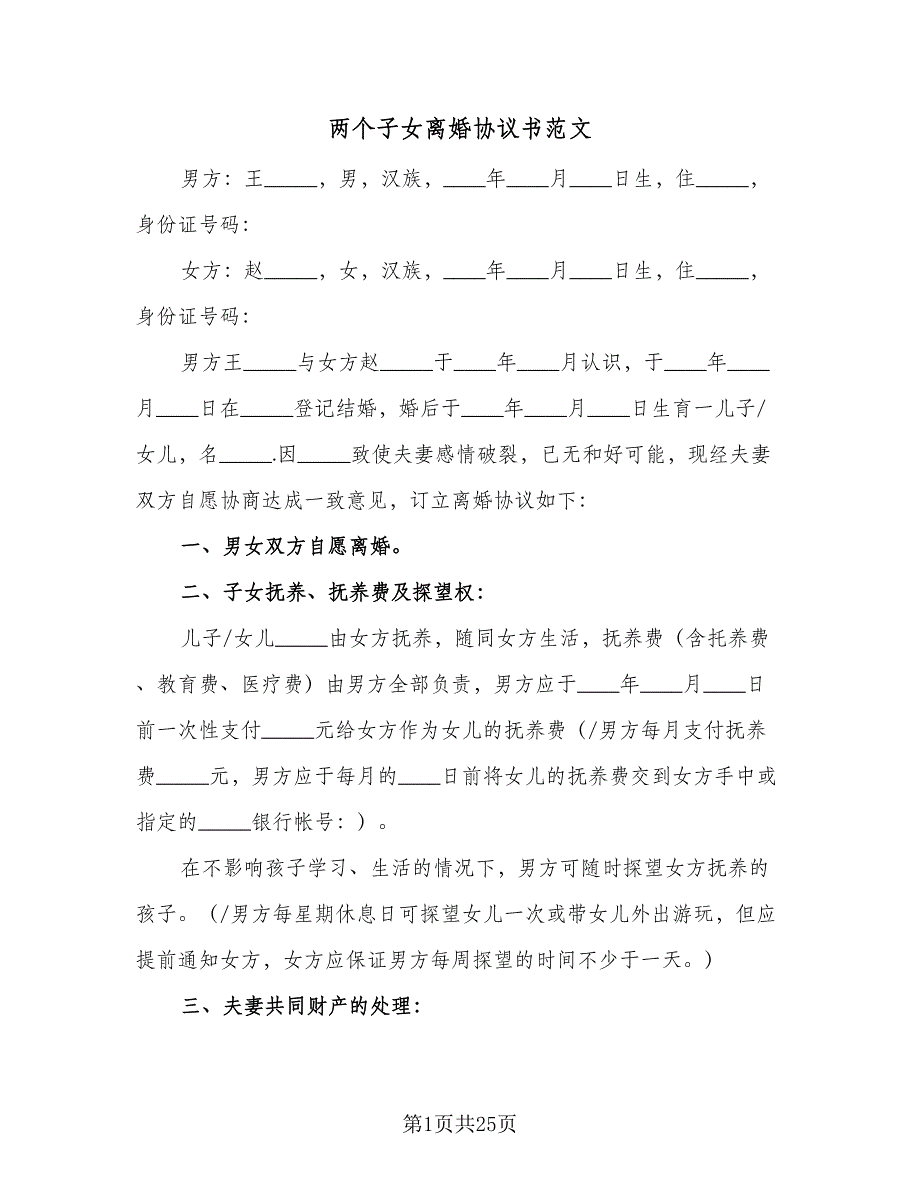 两个子女离婚协议书范文
男方：王_____，男，汉族，____年____月____日生，住_____，
身份证号码：
女方：赵_____，女，汉族，____年____月____日生，住_____，
身份证号码：
男方王_____与女方赵_____于____年____月认识，于____年____
月____日在_____登记结婚，婚后于____年____月____日生育一儿子/
女儿，名_____.因_____致使夫妻感情破裂，已无和好可能，现经夫妻
双方自愿协商达成一致意见，订立离婚协议如下：
一、男女双方自愿离婚。
二、子女抚养、抚养费及探望权：
儿子/女儿_____由女方抚养，随同女方生活，抚养费（含托养费
、教育费、医疗费）由男方全部负责，男方应于____年____月____日
前一次性支付_____元给女方作为女儿的抚养费（/男方每月支付抚养
费_____元，男方应于每月的____日前将女儿的抚养费交到女方手中或
指定的_____银行帐号：）。
在不影响孩子学习、生活的情况下，男方可随时探望女方抚养的
孩子。（/男方每星期休息日可探望女儿一次或带女儿外出游玩，但应
提前通知女方，女方应保证男方每周探望的时间不少于一天。）
三、夫妻共同财产的处理：
第1页共25页